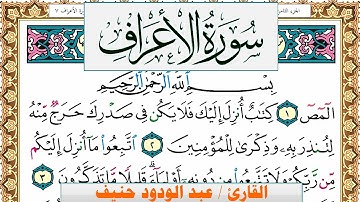 سُورَةُ الأَعْرَافِ
بِسْمِ اللَّهِ الرَّحْمَٰنِ الرَّحِيمِ
الٓمٓصٓ ١ كِتَٰبٌ أُنزِلَ إِلَيْكَ فَلَا يَكُن فِى صَدْرِكَ حَرَجٌ مِّنْهُ
لِتُنذِرَ بِهِۦ وَذِكْرَىٰ لِلْمُؤْمِنِينَ ٢ ٱتَّبِعُوا۟ مَآ أُنزِلَ إِلَيْكُم
مِّن رَّبِّكُمْ وَلَا تَتَّبِعُوا۟ مِن دُونِهِۦٓ أَوْلِيَآءَ قَلِيلًا مَّا تَذَكَّرُونَ ٣
القارئ / عبد الودود حنيف